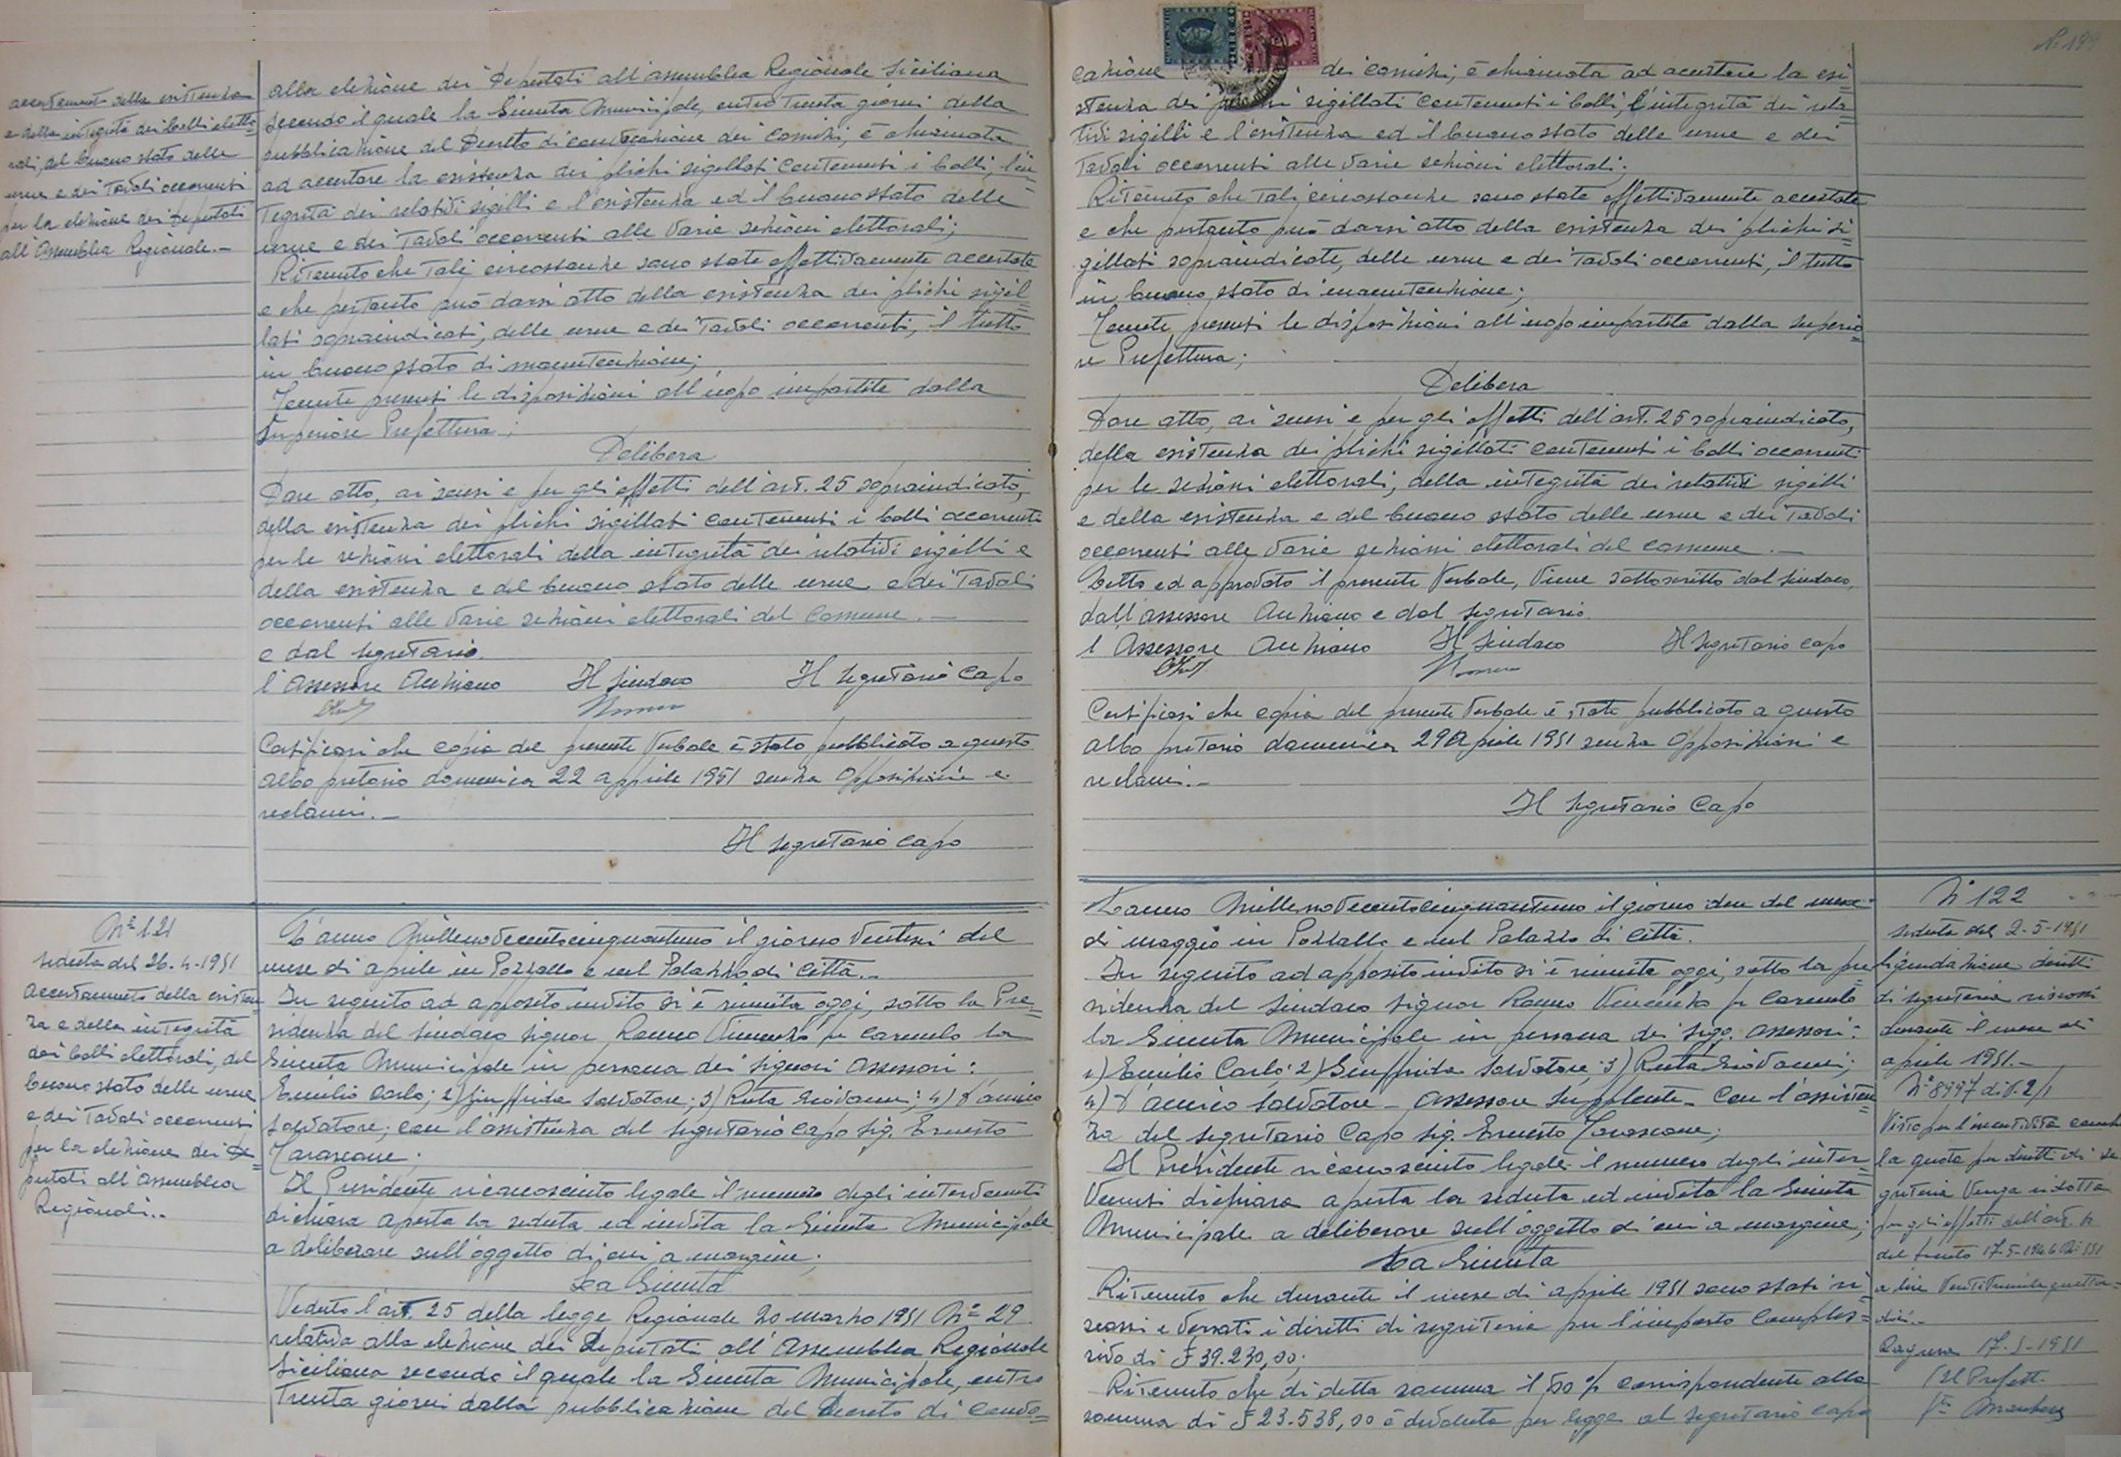 accertamento della esistenza
e della integrità dei bolli eletto=
rali, del buono stato delle
urne e dei Tavoli occorrenti
per la elezione dei Deputati
all'Assemblea Regionale.—
alla elezione dei Deputati all'assemblea Regionale Siciliana
secondo il quale la Giunta Municipale, entro trenta giorni della
pubblicazione del Decreto di convocazione dei comizi, è chiamata
ad accertare la esistenza dei plichi sigillati contenenti i bolli, l'in=
tegrità dei relativi sigilli e l'esistenza ed il buono stato delle
urne e dei Tavoli occorrenti alle varie sezioni elettorali;
Ritenuto che tali circostanze sono state effettivamente accertate
e che pertanto può darsi atto della esistenza dei plichi sigil=
lati sopraindicati, delle urne e dei Tavoli occorrenti, il tutto
in buono stato di manutenzione;
Tenute presenti le disposizioni all'uopo impartite dalla
Superiore Prefettura;
Delibera
Dare atto, ai sensi e per gli effetti dell'art. 25 sopraindicato,
della esistenza dei plichi sigillati contenenti i bolli occorrenti
per le sezioni elettorali della integrità dei relativi sigilli e
della esistenza e del buono stato delle urne e dei Tavoli
occorrenti alle varie sezioni elettorali del Comune.—
e dal segretario.
l'Assessore Anziano Il Sindaco Il Segretario Capo
Certificasi che copia del presente Verbale è stato pubblicato a questo
albo pretorio domenica 22 aprile 1951 senza opposizioni e
reclami.—
Il Segretario Capo
N° 121
seduta del 26-4-1951
accertamento della esisten=
za e della integrità
dei bolli elettorali, del
buono stato delle urne
e dei Tavoli occorrenti
per la elezione dei De=
putati all'assemblea
Regionali..
L'anno Millenovecentocinquantuno il giorno ventisei del
mese di aprile in Pozzallo e nel Palazzo di Città.—
In seguito ad apposito invito si è riunita oggi, sotto la Pre=
sidenza del Sindaco Signor Romeo Vincenzo fu Carmelo la
Giunta Municipale in persona dei Signori Assessori:
Emilio Carlo; 2) Giuffrida Salvatore; 3) Ruta Giovanni; 4) D'amico
Salvatore; con l'assistenza del Segretario Capo Sig. Ernesto
Tarascone;
Il Presidente riconosciuto legale il numero degli intervenuti
dichiara aperta la seduta ed invita la Giunta Municipale
a deliberare sull'oggetto di cui a margine;
La Giunta
Veduto l'art. 25 della legge Regionale 20 marzo 1951 N° 29
relativa alla elezione dei Deputati all'Assemblea Regionale
Siciliana secondo il quale la Giunta Municipale, entro
trenta giorni dalla pubblicazione del Decreto di convo=
cazione dei comizi, è chiamata ad accertare la esi=
stenza dei plichi sigillati contenenti i bolli, l'integrità dei rela=
tivi sigilli e l'esistenza ed il buono stato delle urne e dei
Tavoli occorrenti alle varie sezioni elettorali;
Ritenuto che tali circostanze sono state effettivamente accertate
e che pertanto può darsi atto della esistenza dei plichi si=
gillati sopraindicate, delle urne e dei Tavoli occorrenti, il tutto
in buono stato di manutenzione;
Tenute presenti le disposizioni all'uopo impartite dalla Superio=
re Prefettura;
Delibera
Dare atto, ai sensi e per gli effetti dell'art. 25 sopraindicato,
della esistenza dei plichi sigillati contenenti i bolli occorrenti
per le sezioni elettorali, della integrità dei relativi sigilli
e della esistenza e del buono stato delle urne e dei Tavoli
occorrenti alle varie sezioni elettorali del comune.—
Letto ed approvato il presente Verbale, viene sottoscritto dal Sindaco,
dall'assessore Anziano e dal Segretario.
l'Assessore Anziano Il Sindaco Il Segretario Capo
Certificasi che copia del presente Verbale è stato pubblicato a questo
albo pretorio domenica 29 Aprile 1951 senza opposizioni e
reclami.—
Il Segretario Capo
L'anno Millenovecentocinquantuno il giorno due del mese
di maggio in Pozzallo e nel Palazzo di Città.
In seguito ad apposito invito si è riunita oggi, sotto la pre
sidenza del Sindaco Signor Romeo Vincenzo fu Carmelo
la Giunta Municipale in persona dei Sigg. Assessori:
1) Emilio Carlo; 2) Giuffrida Salvatore; 3) Ruta Giovanni;
4) D'amico Salvatore — Assessore Supplente — Con l'assisten
za del Segretario Capo Sig. Ernesto Tarascone;
Il Presidente riconosciuto legale il numero degli inter=
venuti dichiara aperta la seduta ed invita la Giunta
Municipale a deliberare sull'oggetto di cui a margine;
La Giunta
Ritenuto che durante il mese di aprile 1951 sono stati ri
scossi e versati i diritti di segreteria per l'importo comples=
sivo di £ 39.230,00;
Ritenuto che di detta somma il 60% corrispondente alla
somma di £ 23.538,00 è devoluta per legge al Segretario Capo
N° 122
seduta del 2-5-1951
liquidazione diritti
di segreteria riscossi
durante il mese di
aprile 1951.—
N° 8997 div. 2/1
Visto per l'esecutività
la quota per diritti di se
greteria venga ridotta
per gli effetti dell'art.
del Decreto 17-5-1946
a lire
Ragusa 17-5-1951
Il Prefetto